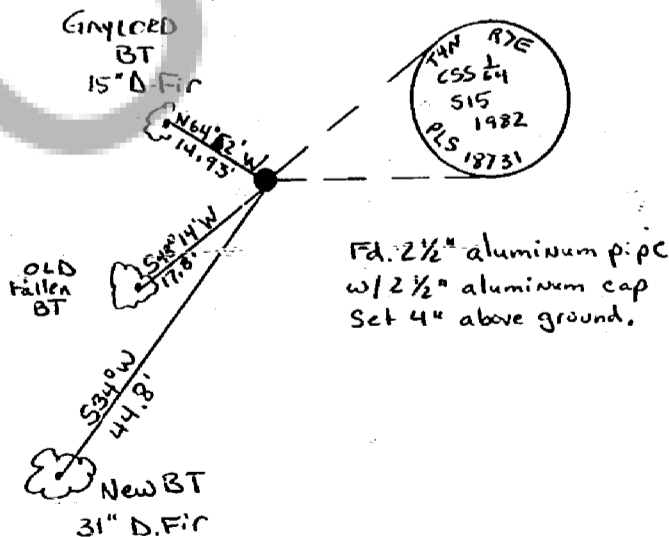 GAYLORD
BT
15" D.Fir
N64°52'W
14.93'
T4N R7E
CSS 1/64
S15
1982
PLS 18731
OLD
Fallen
BT
S48°14'W
17.8'
Fd. 2 1/2" aluminum pipe
w/ 2 1/2" aluminum cap
Set 4" above ground.
S34°W
44.8'
New BT
31" D.Fir